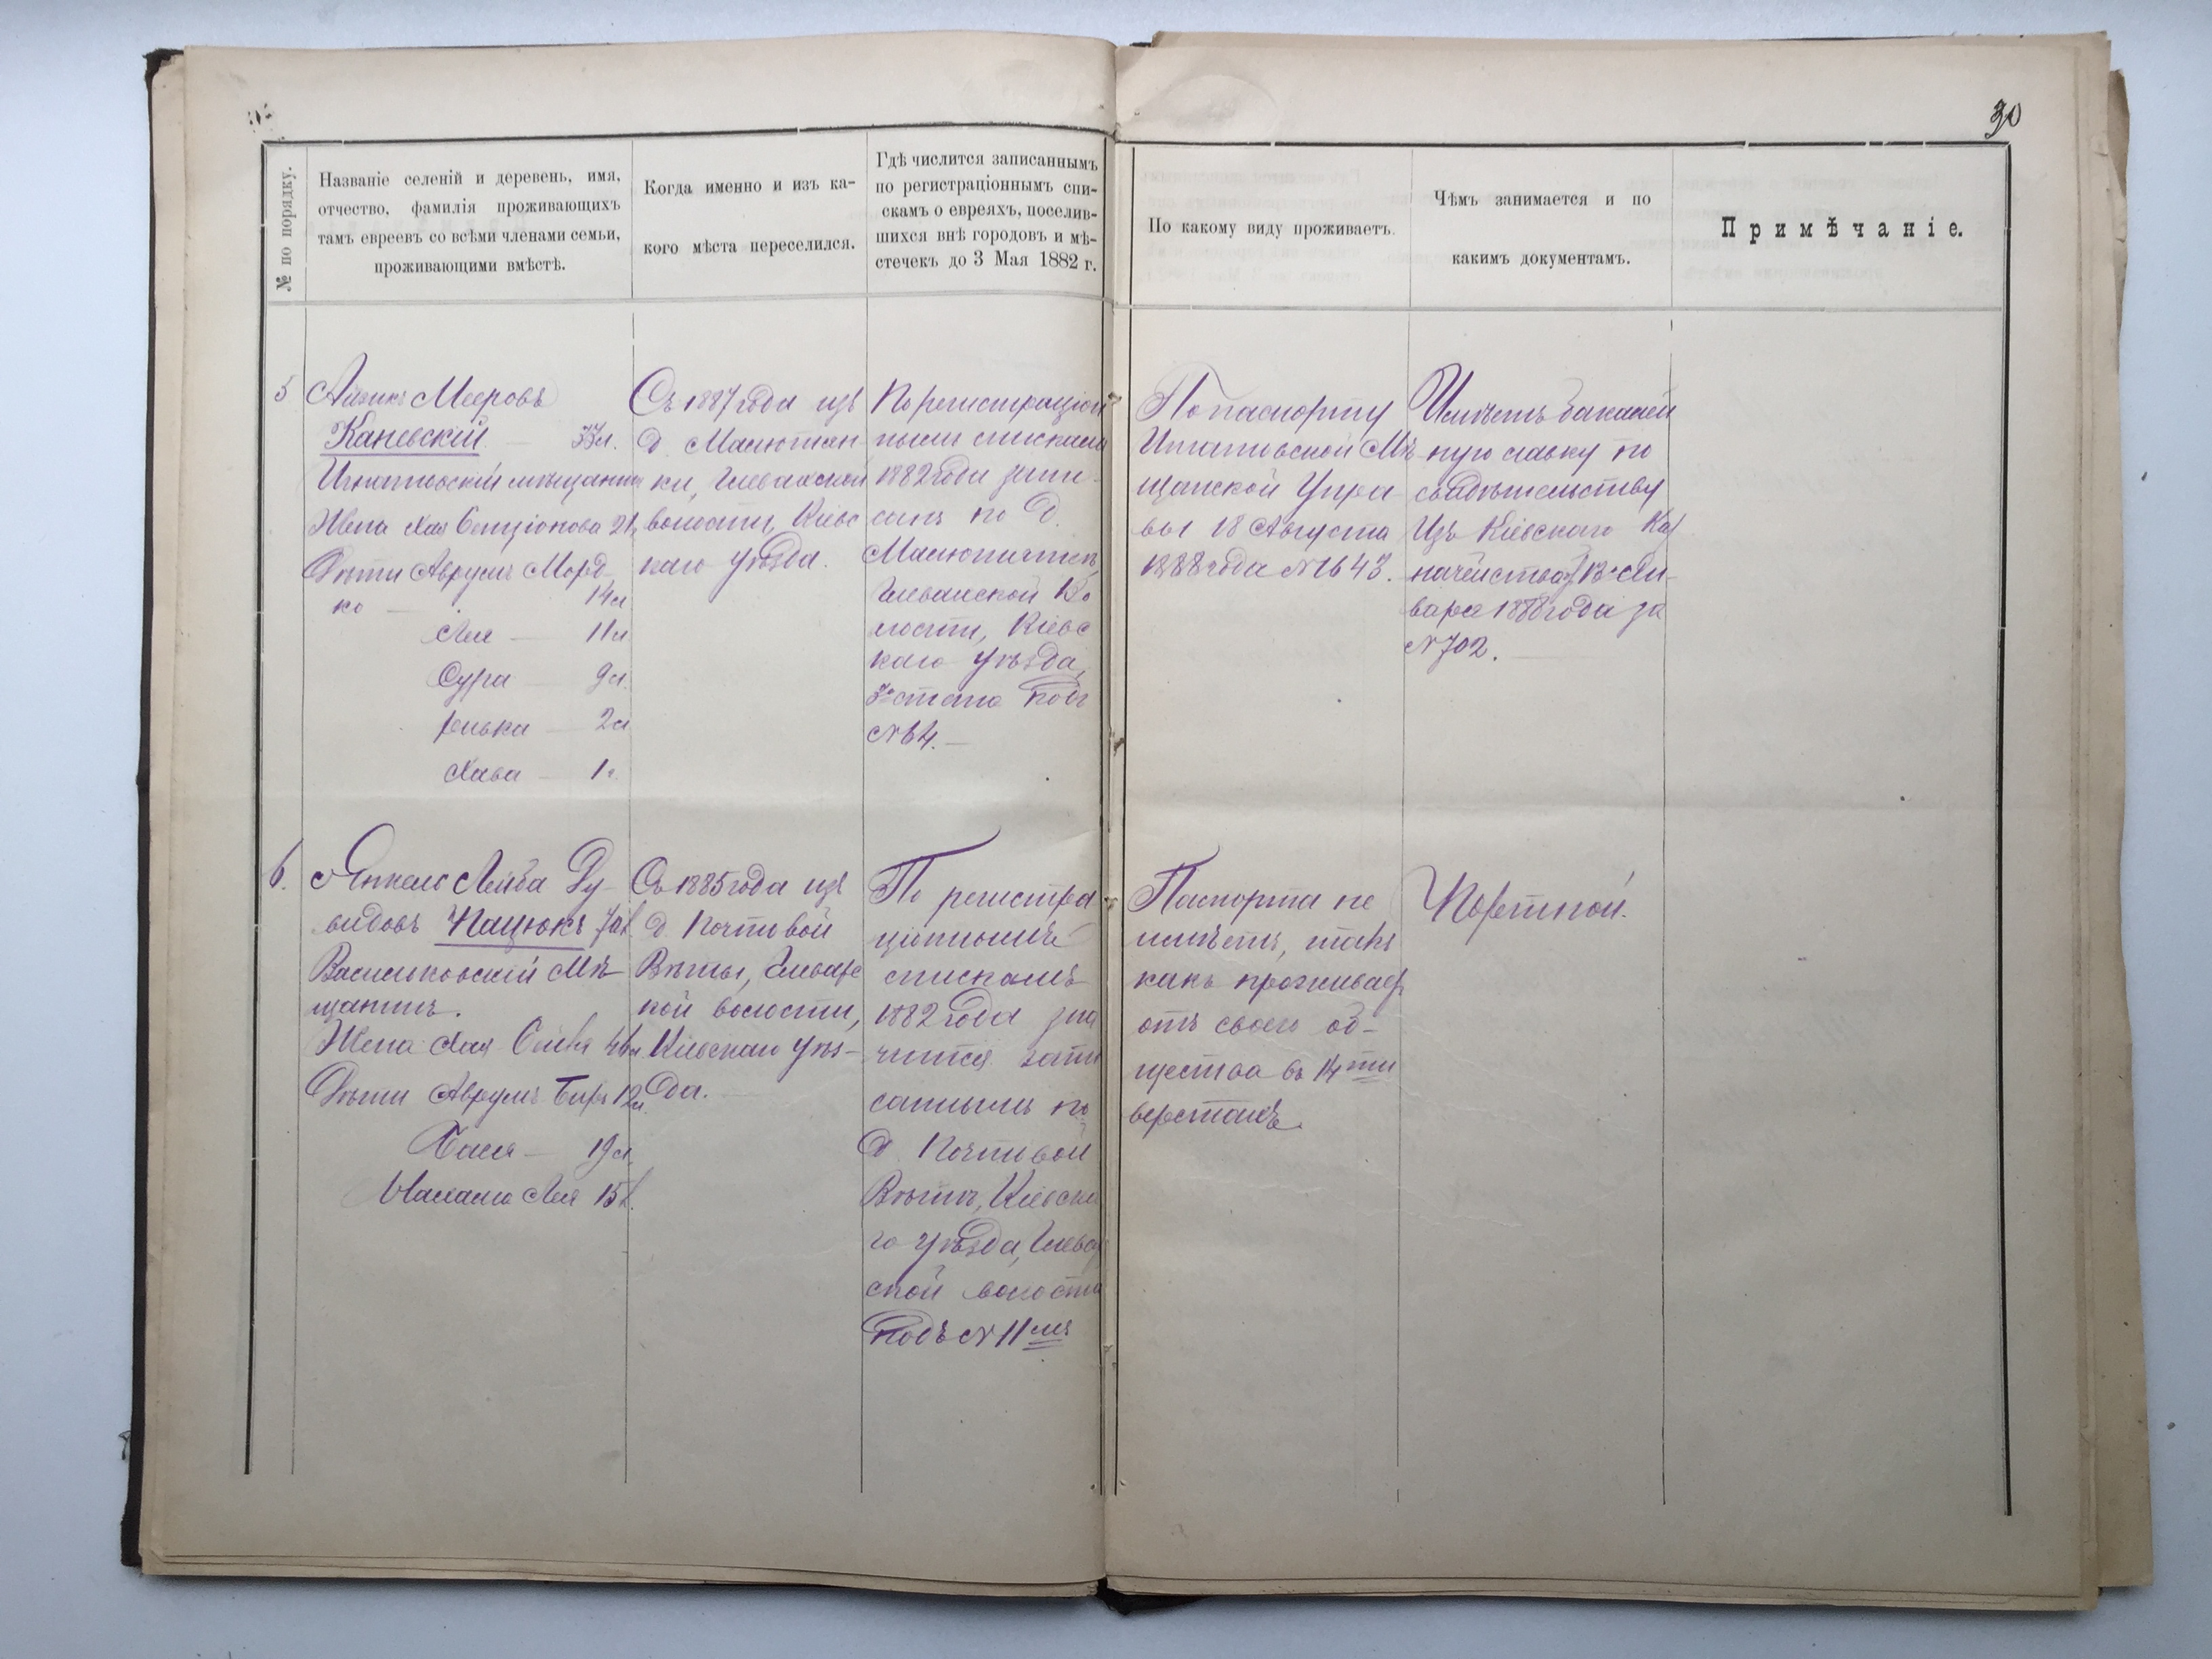 30
№ по порядку.
Названіе селеній и деревень, имя,
отчество, фамилія проживающихъ
тамъ евреевъ со всѣми членами семьи,
проживающими вмѣстѣ.
Когда именно и изъ ка-
кого мѣста переселился.
Гдѣ числится записаннымъ
по регистраціоннымъ спи-
скамъ о евреяхъ, поселив-
шихся внѣ городовъ и мѣ-
стечекъ до 3 Мая 1882 г.
По какому виду проживаетъ.
Чѣмъ занимается и по
какимъ документамъ.
Примѣчаніе.
5
Айзикъ Мееровъ
Каневскій
Игнатовскій мѣщанинъ
Жена Хая Бенціонова
Дѣти Аврумъ Морд-
ко — 14 л
Лея — 11 л
Сура — 9 л.
— 2 л
Хава — 1 г.
Съ 1887 года изъ
д. Малютян
ки, Глевахской
волости, Кіевс
каго уѣзда.
По регистраціон
нымъ спискамъ
1882 года запи-
санъ по д.
Малютянкѣ,
Глевахской Во
лости, Кіевс
каго уѣзда,
стана подъ
№ 64. —
По паспорту
Игнатовской Мѣ
щанской Упра
вы 18 Августа
1888 года № 1643.
Имѣетъ бакалей
ную лавку по
свидѣтельству
Изъ Кіевскаго Каз
начейства Ян-
варя 1888 года за
№ 702.
6.
Янкель Лейба Ду-
видовъ Пацюкъ
Васильковскій Мѣ-
щанинъ.
Жена Хая
Дѣти Аврумъ Беръ 12 л.
Бася — 19 л.
Лея 15 л.
Съ 1885 года изъ
д. Почтовой
Вѣты, Глевахс
кой волости,
Кіевскаго уѣз-
да.
По регистра
ціоннымъ
спискамъ
1882 года зна
чится запи
саннымъ по
д. Почтовой
Вѣтѣ, Кіевска
го уѣзда, Глевах
ской волости
подъ № 11мъ
Паспорта не
имѣетъ, такъ
какъ проживаетъ
отъ своего об-
щества въ 14ти
верстахъ.
Портной.